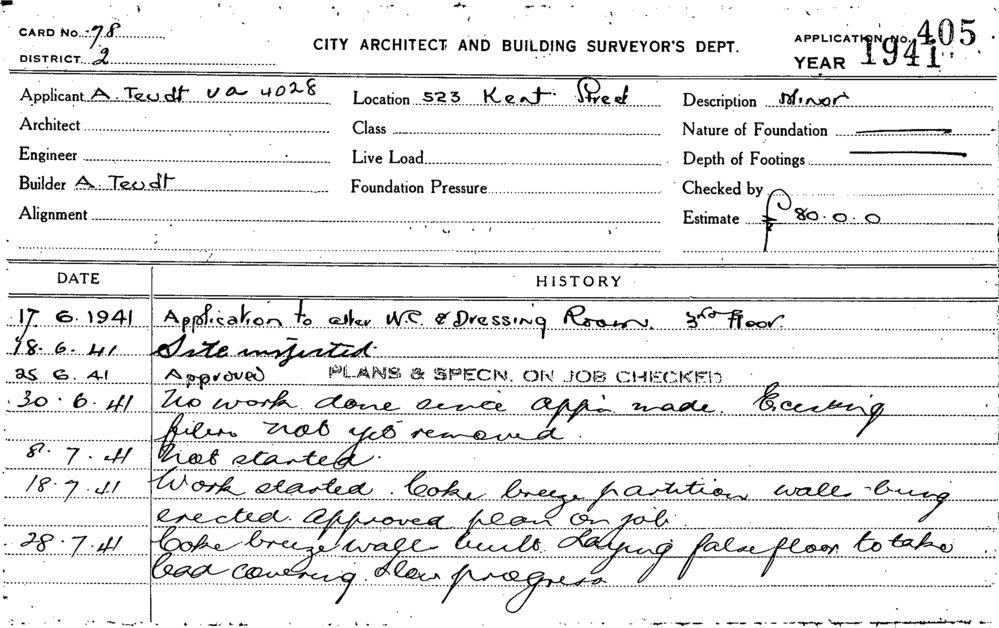 CARD No. 78
DISTRICT 2
CITY ARCHITECT AND BUILDING SURVEYOR'S DEPT.
APPLICATION No. 405
YEAR 1941
Applicant A. Teudt va 4028
Location 523 Kent Street
Description Minor
Architect
Class
Nature of Foundation
Engineer
Live Load
Depth of Footings
Builder A. Teudt
Foundation Pressure
Checked by
Alignment
Estimate £80.0.0
DATE HISTORY
17 6.1941 Application to alter W.C. & Dressing Room. 3rd Floor.
18.6.41 Site inspected.
25 6.41 Approved PLANS & SPECN. ON JOB CHECKED
30.6.41 No work done since appn made. Existing
not yet removed.
8.7.41 Not started.
18.7.41 Work started. Coke breeze partition walls being
erected. Approved plan on job
28.7.41 Coke breeze walls built. Laying false floor to take
lead covering. Slow progress.